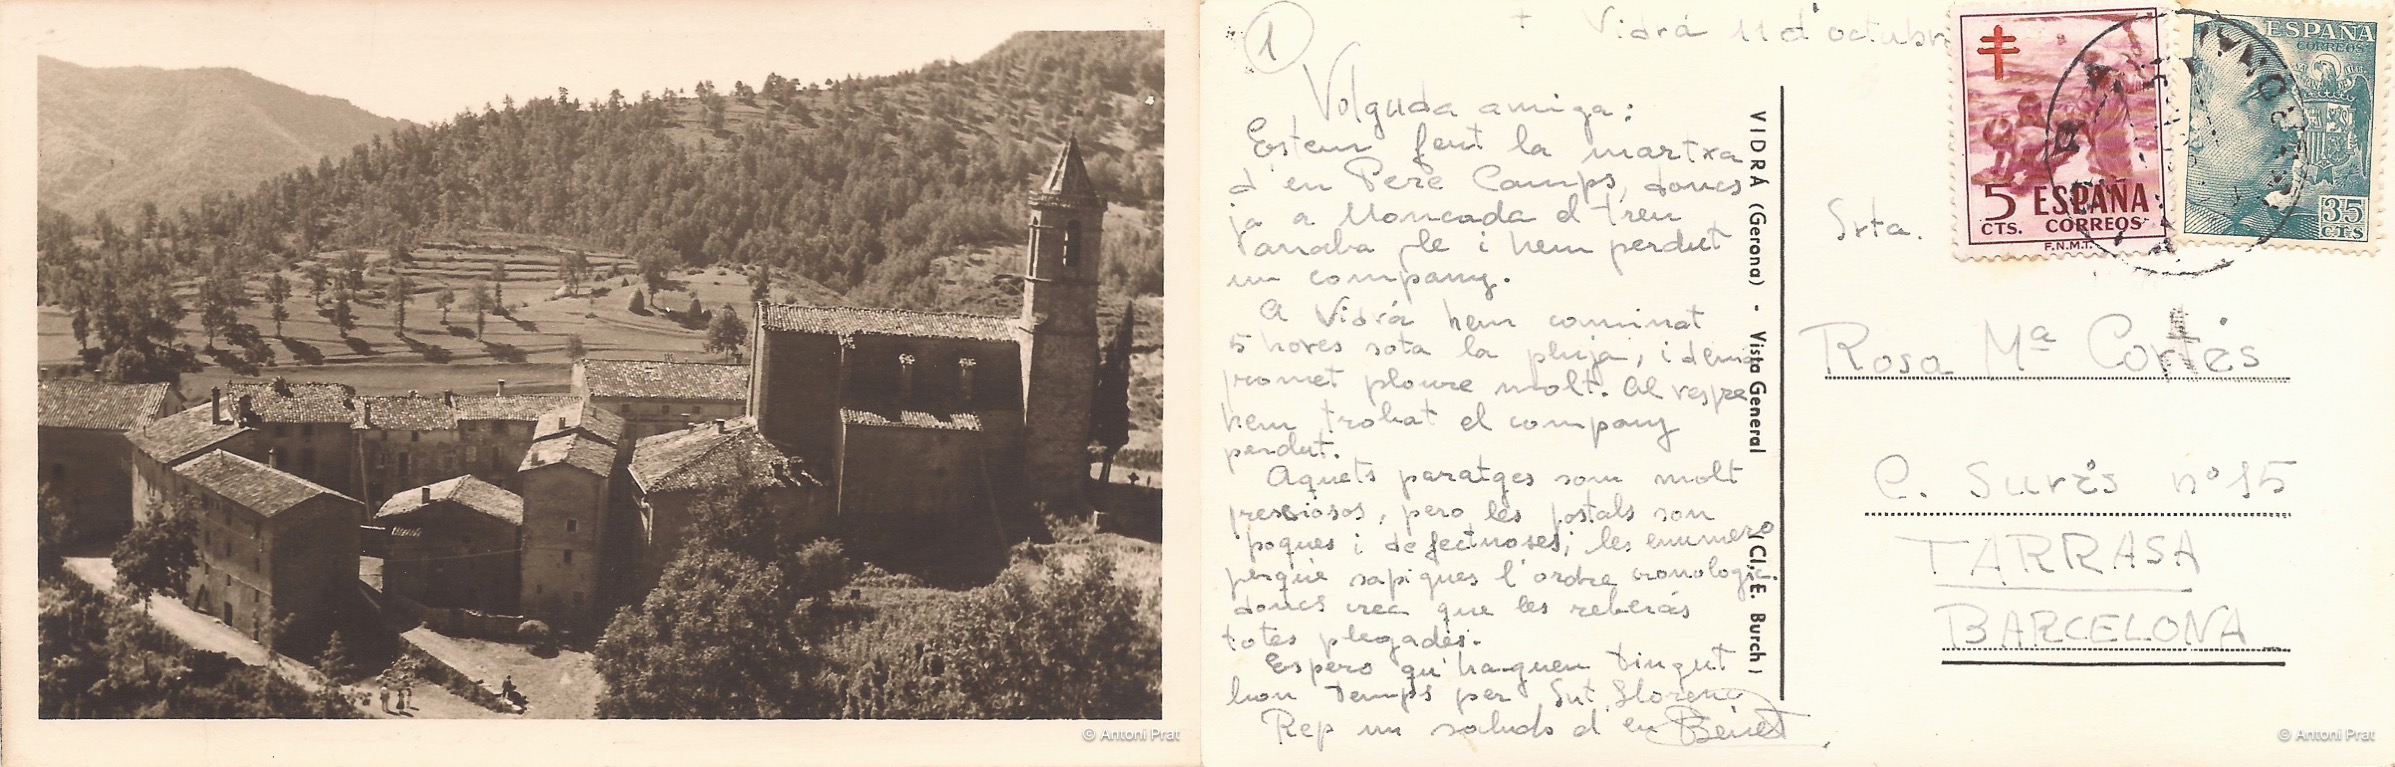 © Antoni Prat
1
Vidrá 11 d'octubre
Volguda amiga:
Estem fent la martxa
d'en Pere Camps, doncs
ja a Moncada el tren
anaba ple i hem perdut
un company.
A Vidrá hem caminat
5 hores sota la pluja, i demá
promet ploure molt. Al vespre
hem trobat el company
perdut.
Aquets paratges som molt
presciosos, pero les postals son
poques i defectuoses; les enumero
perque sapigues l'ordre cronologic
doncs crec que les reberás
totes plegades.
Espero qu'hagueu tingut
bon temps per Snt. Llorenç
Rep un saludo d'en Benet
VIDRÁ (Gerona) - Vista General
(Cl. E. Burch)
ESPAÑA
CORREOS
35
CTS
5 ESPAÑA
CTS. CORREOS
F.N.M.T.
Srta.
Rosa Mª Cortés
C. Surés nº 15
TARRASA
BARCELONA
© Antoni Prat